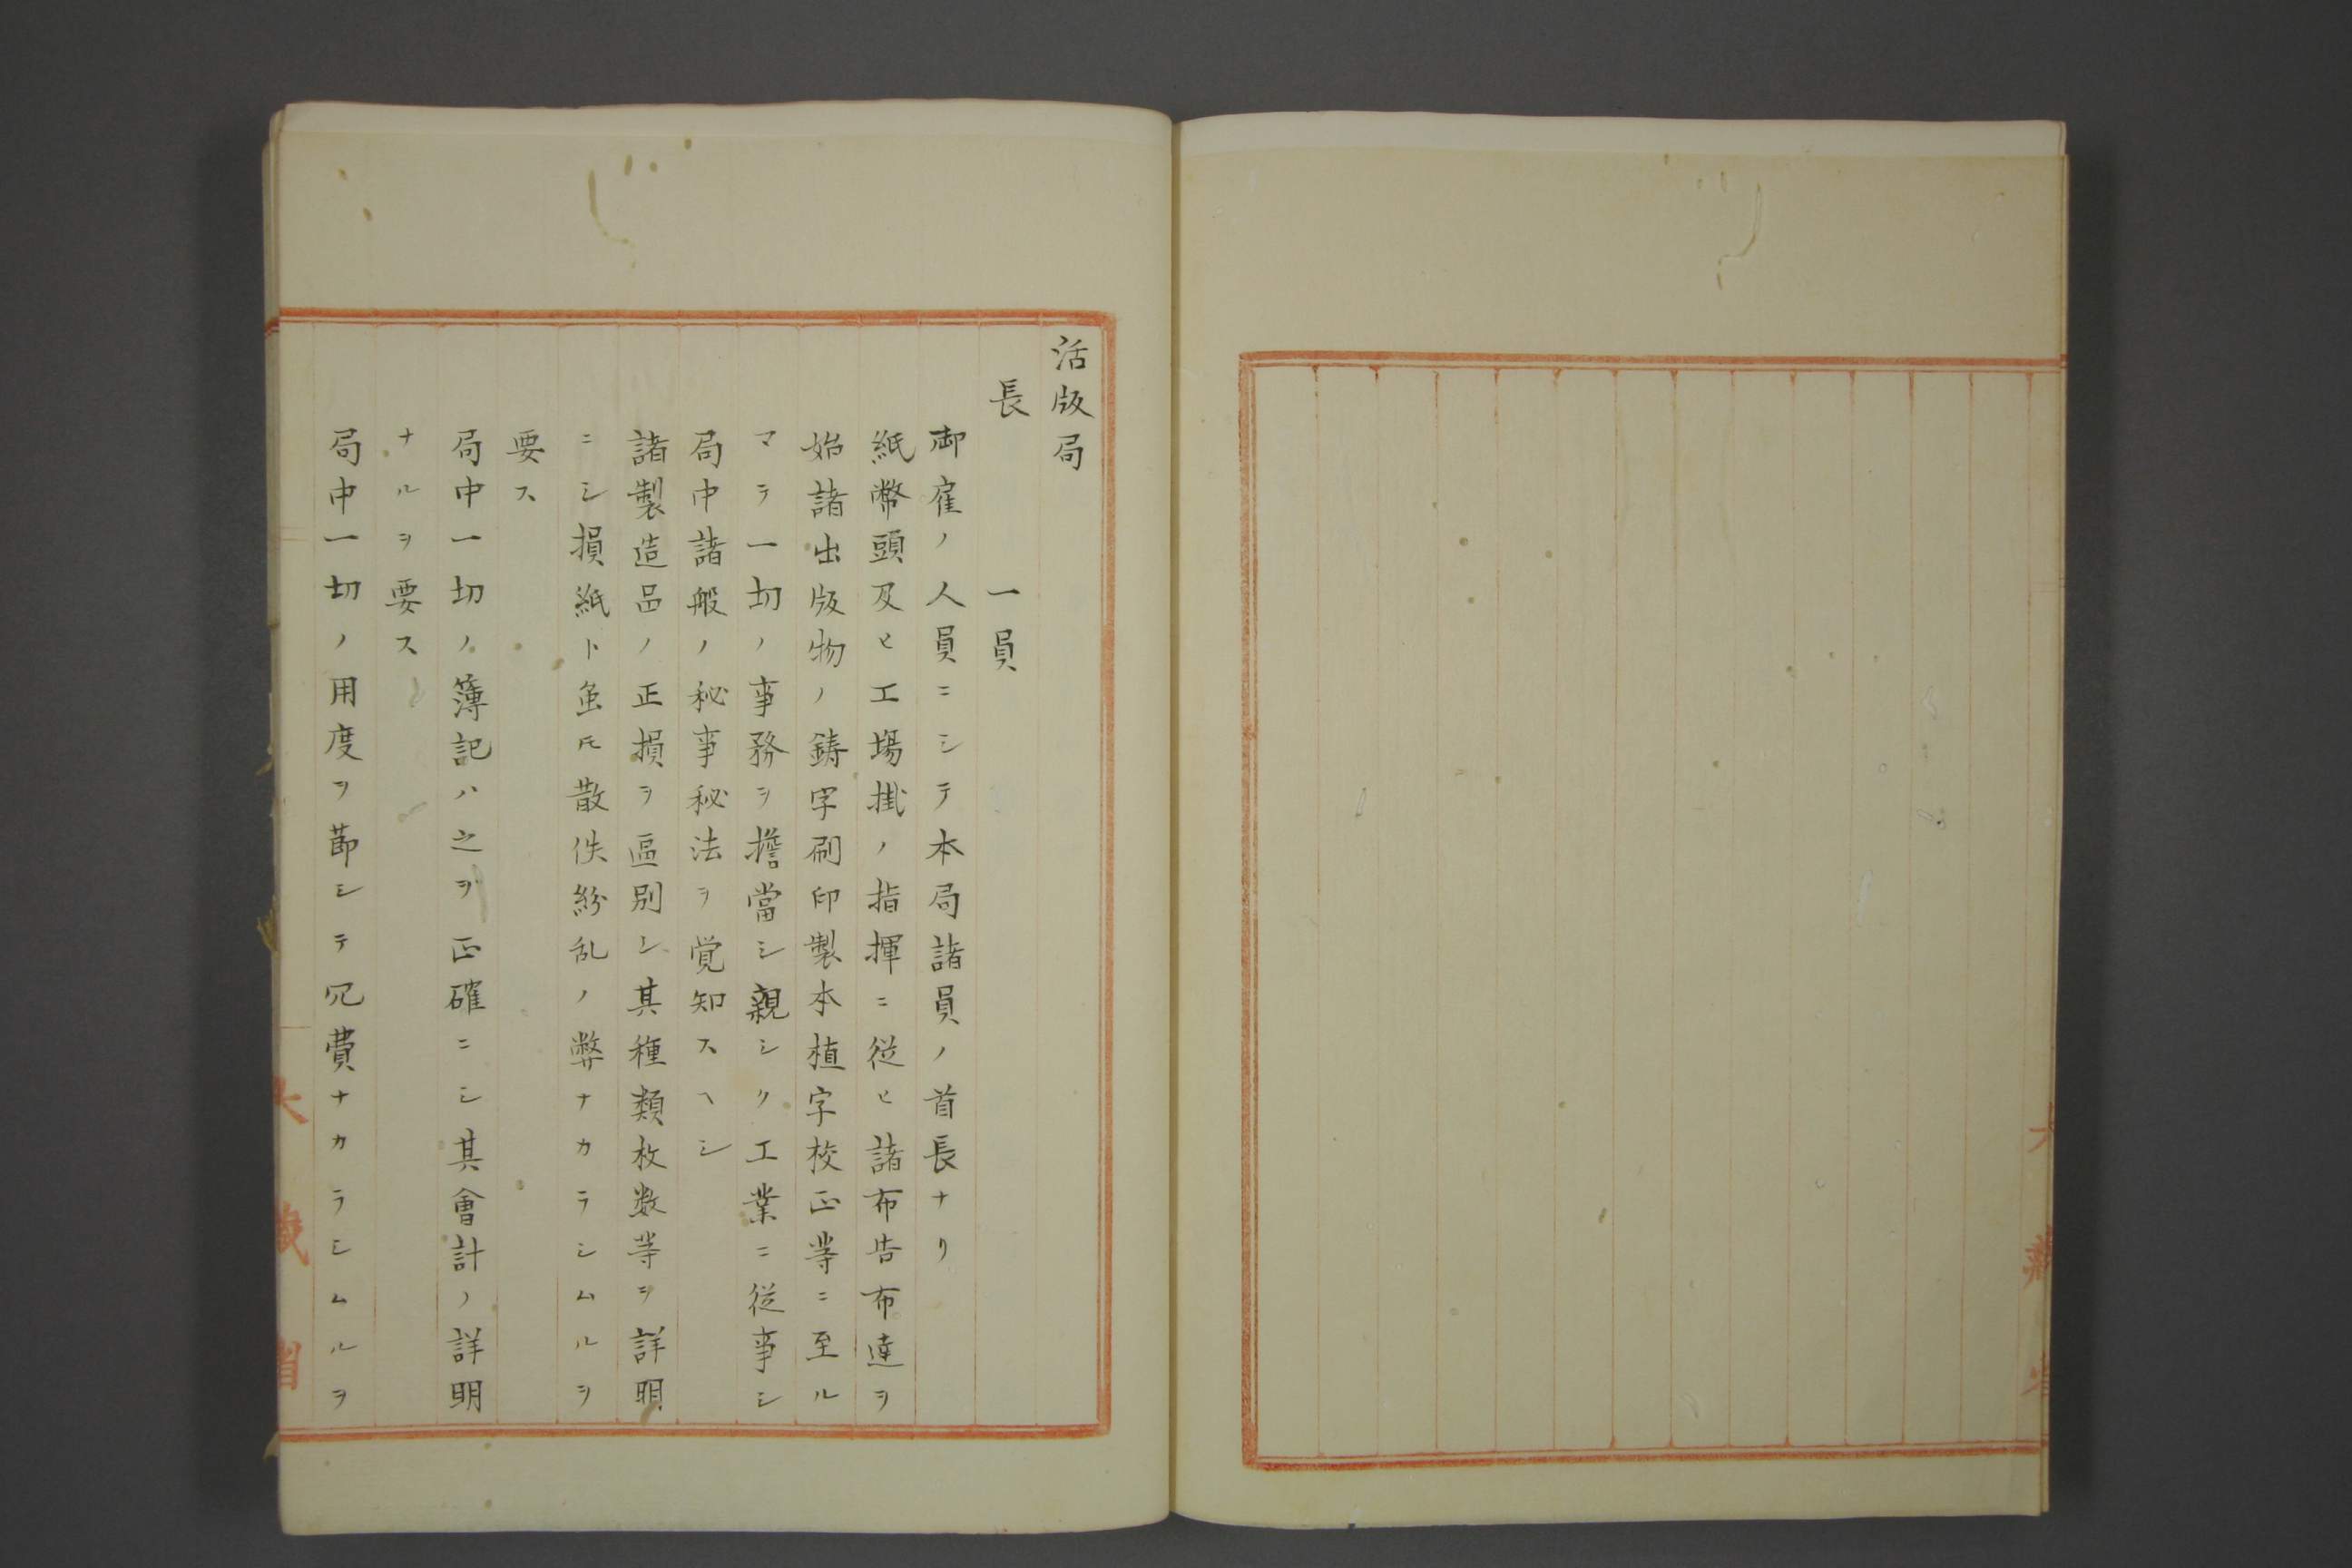 活版局
長　一員
御雇ノ人員ニシテ本局諸員ノ首長ナリ
紙幣頭及ヒ工場掛ノ指揮ニ従ヒ諸布告布達ヲ
始諸出版物ノ鋳字刷印製本植字校正等ニ至ル
マテ一切ノ事務ヲ擔當シ親シク工業ニ従事シ
局中諸般ノ秘事秘法ヲ覚知スヘシ
諸製造品ノ正損ヲ區別シ其種類枚数等ヲ詳明
ニシ損紙ト虽𪜈散佚紛乱ノ弊ナカラシムルヲ
要ス
局中一切ノ簿記ハ之ヲ正確ニシ其會計ノ詳明
ナルヲ要ス
局中一切ノ用度ヲ節シテ冗費ナカラシムルヲ
大蔵省